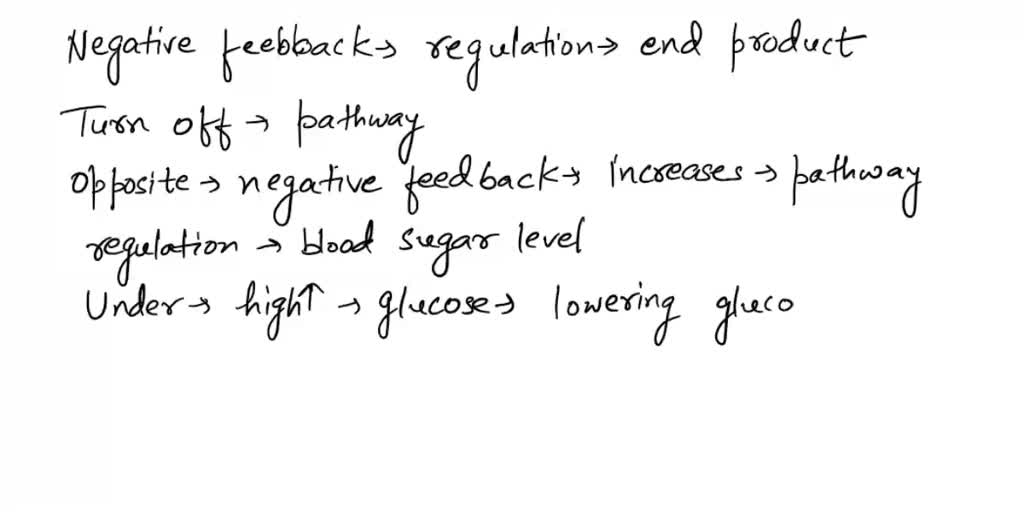 Negative feebback → regulation → end product
Turn off → pathway
Opposite → negative feedback → increases → pathway
regulation → blood sugar level
Under → high↑ → glucose → lowering gluco